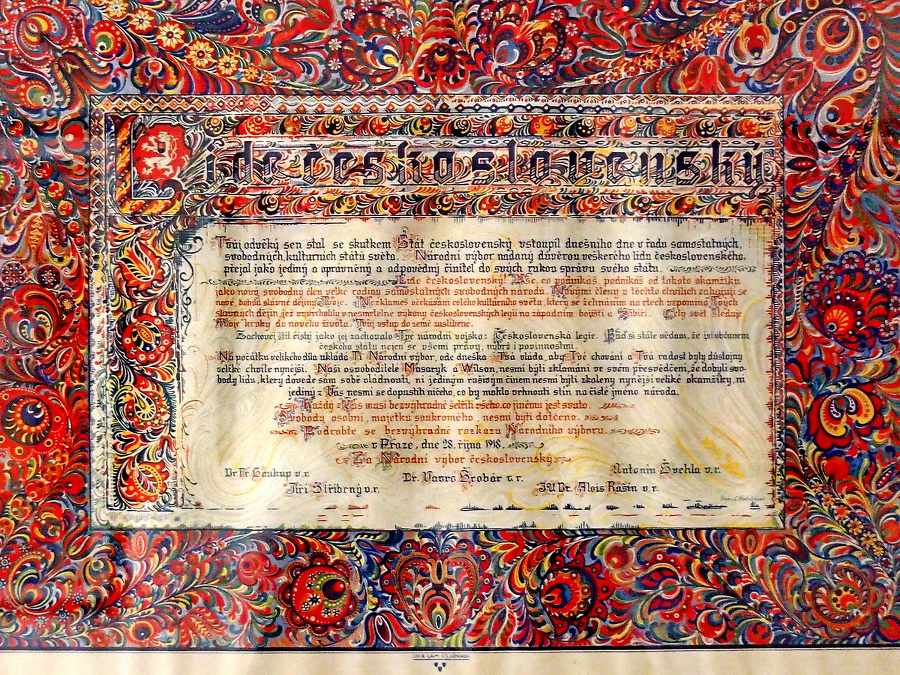 Lide československý
Tvůj odvěký sen stal se skutkem. Štát československý vstoupil dnešního dne v řadu samostatných,
svobodných, kulturních států světa. Národní výbor nadaný důvěrou veškerého lidu československého,
přejal jako jediný a oprávněný a odpovědný činitel do svých rukou správu svého státu.
Lide československý! Vše, co podnikáš, podnikáš od tohoto okamžiku
jako nový svobodný člen velké rodiny samostatných svobodných národů. Novými činy v těchto chvílích zahajují se
nové, bohdá slavné dějiny Tvoje. Nezklameš očekávání celého kulturního světa, který se žehnáním na rtech vzpomíná Tvých
slavných dějin, jež vyvrcholily v nesmrtelné výkony československých legií na západním bojišti a Sibiři. Celý svět sleduje
Tvoje kroky do nového života, Tvůj vstup do země zaslíbené.
Zachovej štít čistý jako jej zachovalo Tvé národní vojsko: Československá legie. Buď si stále vědom, že jsi občanem
československého státu nejen se všemi právy, nýbrž i povinnostmi.
Na počátku velikého díla ukládá Ti Národní výbor, ode dneška Tvá vláda, aby Tvé chování a Tvá radost byly důstojny
veliké chvíle nynější. Naši osvoboditelé Masaryk a Wilson, nesmí býti zklamáni ve svém přesvědčení, že dobyli svo-
body lidu, který dovede sám sobě vládnouti, ni jediným rušivým činem nesmí býti zkaleny nynější veliké okamžiky, ni
jediný z Vás nesmí se dopustiti ničeho, co by mohlo vrhnouti stín na čisté jméno národa.
Každý z Vás musí bezvýhradně šetřiti všeho, co jinému jest svato.
Svobody osobní, majetku soukromého, nesmí býti dotčeno.
Podrobte se bezvýhradně rozkazu Národního výboru.
v Praze, dne 28. října 1918.
Za Národní výbor československý
Dr. Fr. Soukup v.r. Antonín Švehla v.r.
Dr. Vavro Šrobár v.r.
Jiří Stříbrný v.r. JUDr. Alois Rašín v.r.